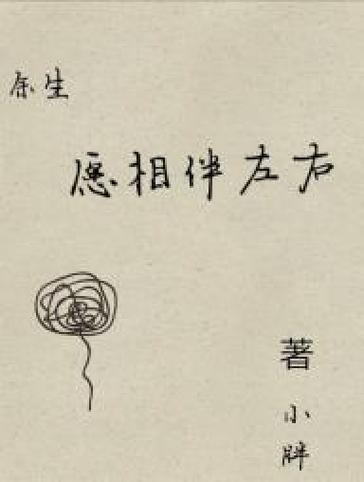 余生
愿相伴左右
著
小
胖